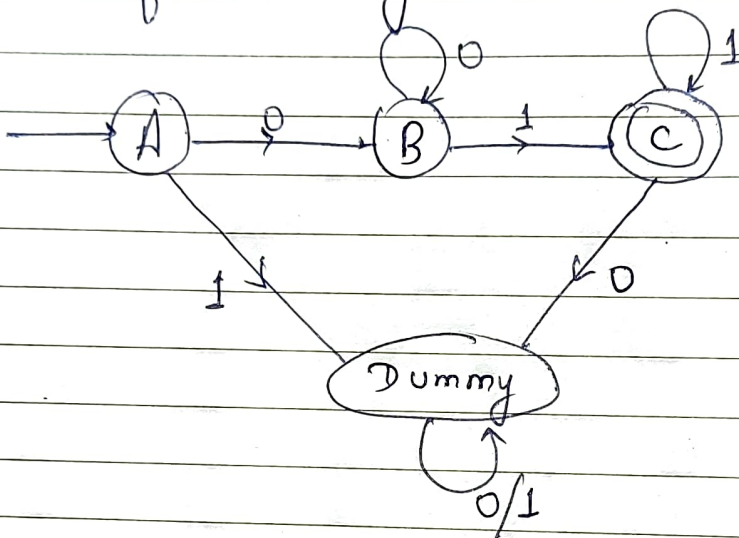 0 1
A 0 B 1 C
1 0
Dummy
0/1